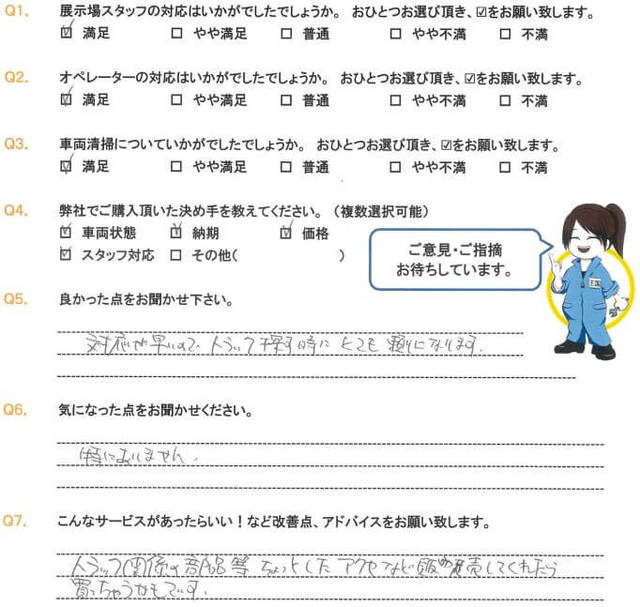 Q1. 展示場スタッフの対応はいかがでしたでしょうか。 おひとつお選び頂き、☑をお願い致します。
☑ 満足 □ やや満足 □ 普通 □ やや不満 □ 不満
Q2. オペレーターの対応はいかがでしたでしょうか。 おひとつお選び頂き、☑をお願い致します。
☑ 満足 □ やや満足 □ 普通 □ やや不満 □ 不満
Q3. 車両清掃についていかがでしたでしょうか。 おひとつお選び頂き、☑をお願い致します。
☑ 満足 □ やや満足 □ 普通 □ やや不満 □ 不満
Q4. 弊社でご購入頂いた決め手を教えてください。（複数選択可能）
☑ 車両状態 ☑ 納期 ☑ 価格
☑ スタッフ対応 □ その他( )
ご意見・ご指摘
お待ちしています。
Q5. 良かった点をお聞かせ下さい。
対応が早いので、トラック探す時に とても 頼りになります.
Q6. 気になった点をお聞かせください。
特にありません.
Q7. こんなサービスがあったらいい！など改善点、アドバイスをお願い致します。
トラック関係の商品等 ちょっとした アクセなど 販売してくれたら
買っちゃうかもです.